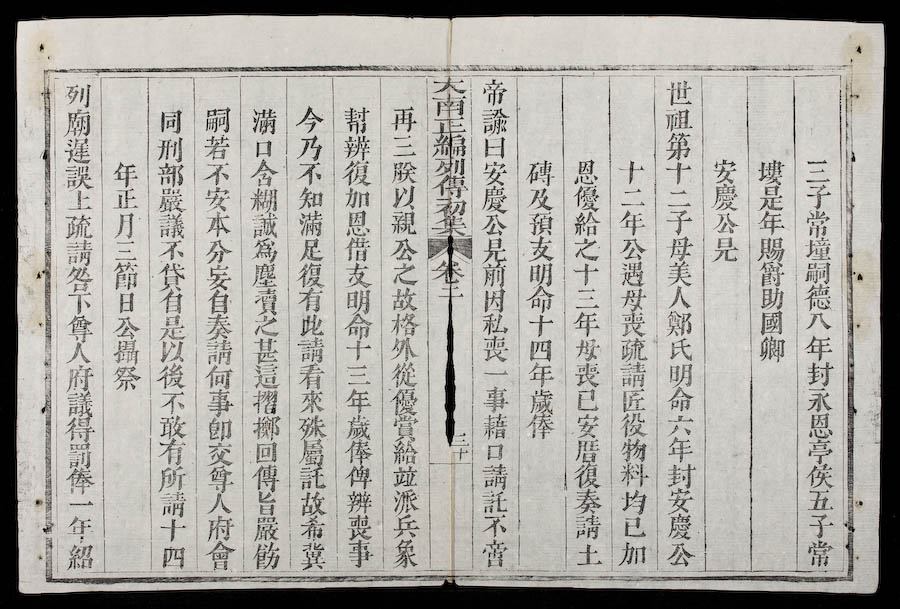 三子常㙜嗣德八年封永恩亭侯五子常
㙧是年賜爵助國卿
安慶公兄
世祖第十二子母美人鄭氏明命六年封安慶公
十二年公遇母喪疏請匠役物料均已加
恩優給之十三年母喪已安厝復奏請土
磚及預支明命十四年歲俸
帝諭曰安慶公兄前因私喪一事藉口請託不啻
大南正編列傳初集 卷二 三十
再三朕以親公之故格外從優賞給並派兵象
幇辨復加恩借支明命十三年歲俸俾辨喪事
今乃不知滿足復有此請看來殊屬託故希冀
滿口含糊誠爲塵瀆之甚這摺擲回傳旨嚴飭
嗣若不安本分妄自奏請何事卽交尊人府會
同刑部嚴議不貸自是以後不敢有所請十四
年正月三節日公攝祭
列廟遲誤上疏請咎下尊人府議得罰俸一年紹